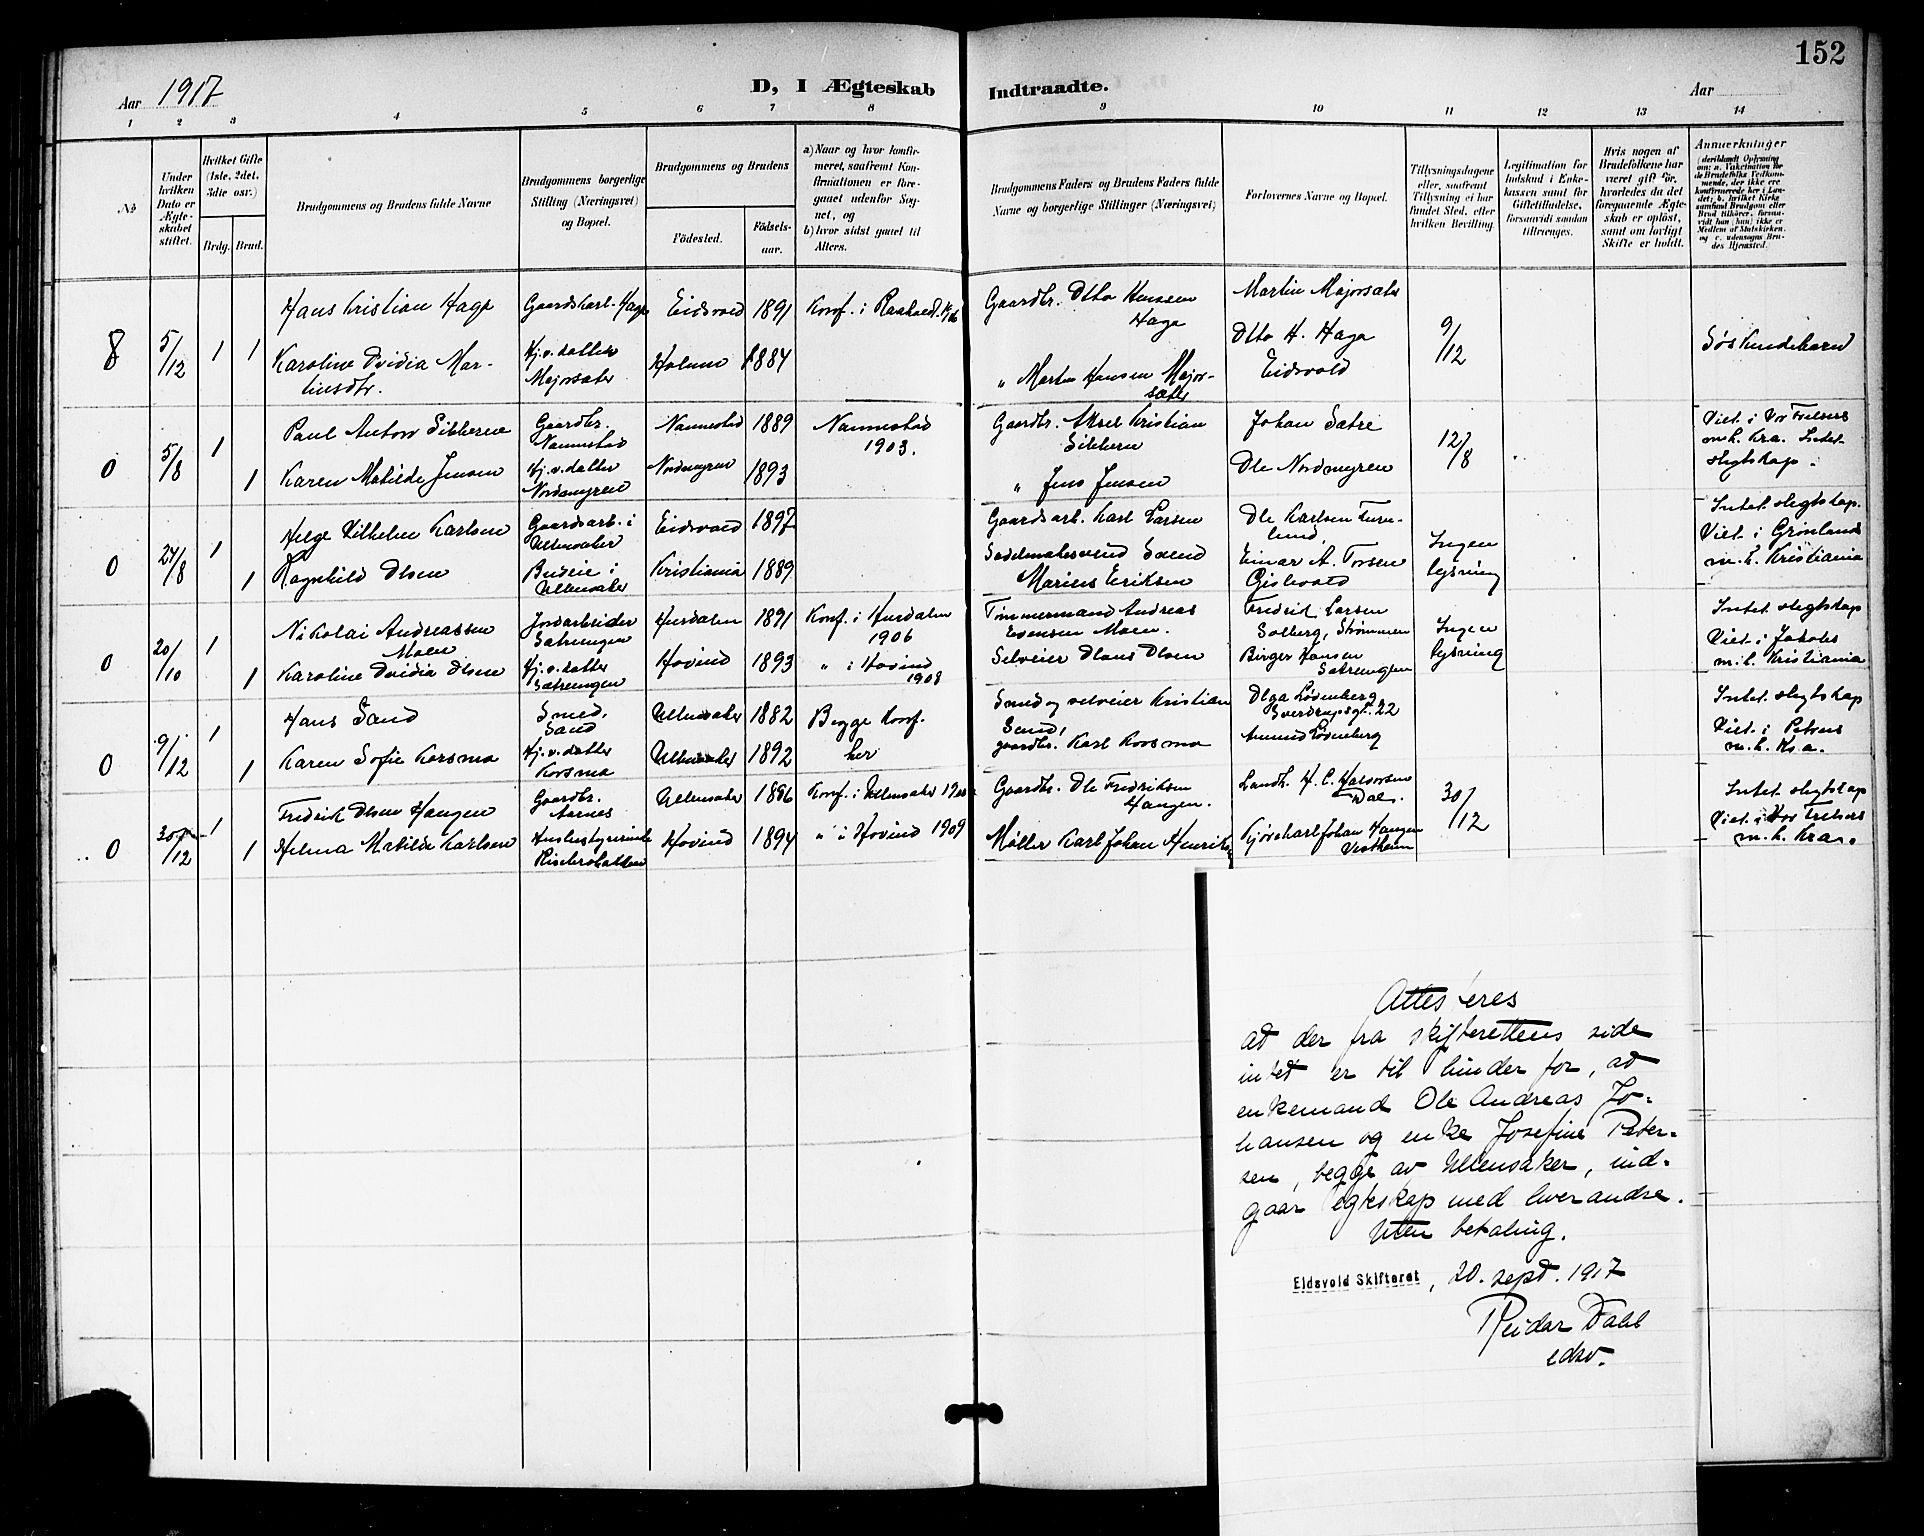 152
Aar 1917
D, I Ægteskab Indtraadte.
Aar
1 2 3 4 5 6 7 8 9 10 11 12 13 14
No
Under hvilken Dato er Ægteskabet stiftet.
Hvilket Gifte (1ste, 2det, 3die osv.)
Brdg. Brud.
Brudgommens og Brudens fulde Navne
Brudgommens borgerlige Stilling (Næringsvei) og Bopæl.
Brudgommens og Brudens
Födested.
Födselsaar.
a) Naar og hvor konfirmeret, saafremt Konfirmationen er foregaaet udenfor Sognet, og
b) hvor sidst gaaet til Alters.
Brudgommens Faders og Brudens Faders fulde Navne og borgerlige Stillinger (Næringsvei)
Forlovernes Navne og Bopæl.
Tillysningsdagene eller, saafremt Tillysning ei har fundet Sted, efter hvilken Bevilling.
Legitimation for Indskud i Enkekassen samt for Giftetilladelse, forsaavidt saadan tiltrænges.
Hvis nogen af Brudefolkene har været gift før, hvorledes da det foregaaende Ægteskab er oplöst, samt om lovligt Skifte er holdt.
Anmerkninger
8 5/12 1 1
Hans Kristian Haga
Gaardskarl Haga
Eidsvold 1891
Konf. i Raaholt
Gaardbr. Otto Hansen
Haga
Martin Majorsater
Otto H. Haga
Eidsvold
9/12
Søskendebarn
Karoline Ovidia Martinsdtr.
Hj.v. datter
Majorsater
Holum 1884
" Martin Hansen Majorsæter
0 5/8 1 1
Paul Anton Sibbern
Gaardbr.
Nannestad
Nannestad 1889
Nannestad
1903.
Gaardbr. Aksel Kristian
Sibbern
Johan Sætre
12/8
Viet i Vor Frelsers
m.h. Kra. Intet
slegtskap.
Karen Matilde Jensen
Hj.v. datter
Nordmyren
Nordmyren 1893
" Jens Jensen
Ole Nordmyren
0 24/8 1 1
Helge Vilhelm Karlsen
Gaardsarb. i
Ullensaker
Eidsvold 1897
Gaardsarb. Karl Larsen
Ole Karlsen Furulund
Ingen
lysning
Intet slegtskap.
Viet i Grønlands
m.h. Kristiania
Ragnhild Olsen
Budeie i
Ullensaker
Kristiania 1889
Sadelmakersvend Svend
Marius Eriksen
Einar A. Torsen
Gislevold
0 20/10 1 1
Nikolai Andreassen
Moen
Jordarbeider
Sætrengen
Hurdalen 1891
Konf. i Hurdalen
1906
Tømmermand Andreas
Evensen Moen.
Fredrik Larsen
Solberg, Strømmen
Ingen
lysning
Intet slegtskap
Viet i Jakobs
m.h. Kristiania
Karoline Ovidia Olsen
Hj.v. datter
Sætrengen
Hovind 1893
" i Hovind
1908
Selveier Olaus Olsen
Birger Hansen
Sætrengen
0 9/12 1 1
Hans Sand
Smed,
Sand
Ullensaker 1882
Begge Konf.
her
Smed og selveier Kristian
Sand,
Olga Lødenberg
Sverdrupsgt. 22
Intet slegtskap
Viet i Petrus
m.h. Kra.
Karen Sofie Korsmo
Hj.v. datter
Korsmo
Ullensaker 1892
gaardbr. Karl Korsmo
Amund Lødenberg
0 30/12 1 1
Fredrik Olsen Haugen
Gaardbr.
Aarnes
Ullensaker 1886
Konf. i Ullensaker
Gaardbr. Ole Fredriksen
Haugen.
Landh. H. C. Halvorsen
Dal.
30/12
Intet slegtskap
Viet i Vor Frelsers
m.h. Kra.
Helma Matilde Karlsen
Husbestyrerinde
Hovind 1894
" i Hovind 1909
Møller Karl Johan
Johan Haugen
Vestheim
Attesteres
at der fra skifterettens side
intet er til hinder for, at
enkemand Ole Andreas Jo-
hansen og enke Josefine Peter-
sen, begge av Ullensaker, ind-
gaar egteskap med hverandre.
Uten betaling.
Eidsvold Skifteret, 20. sept. 1917
Reidar Dahl
edsv.